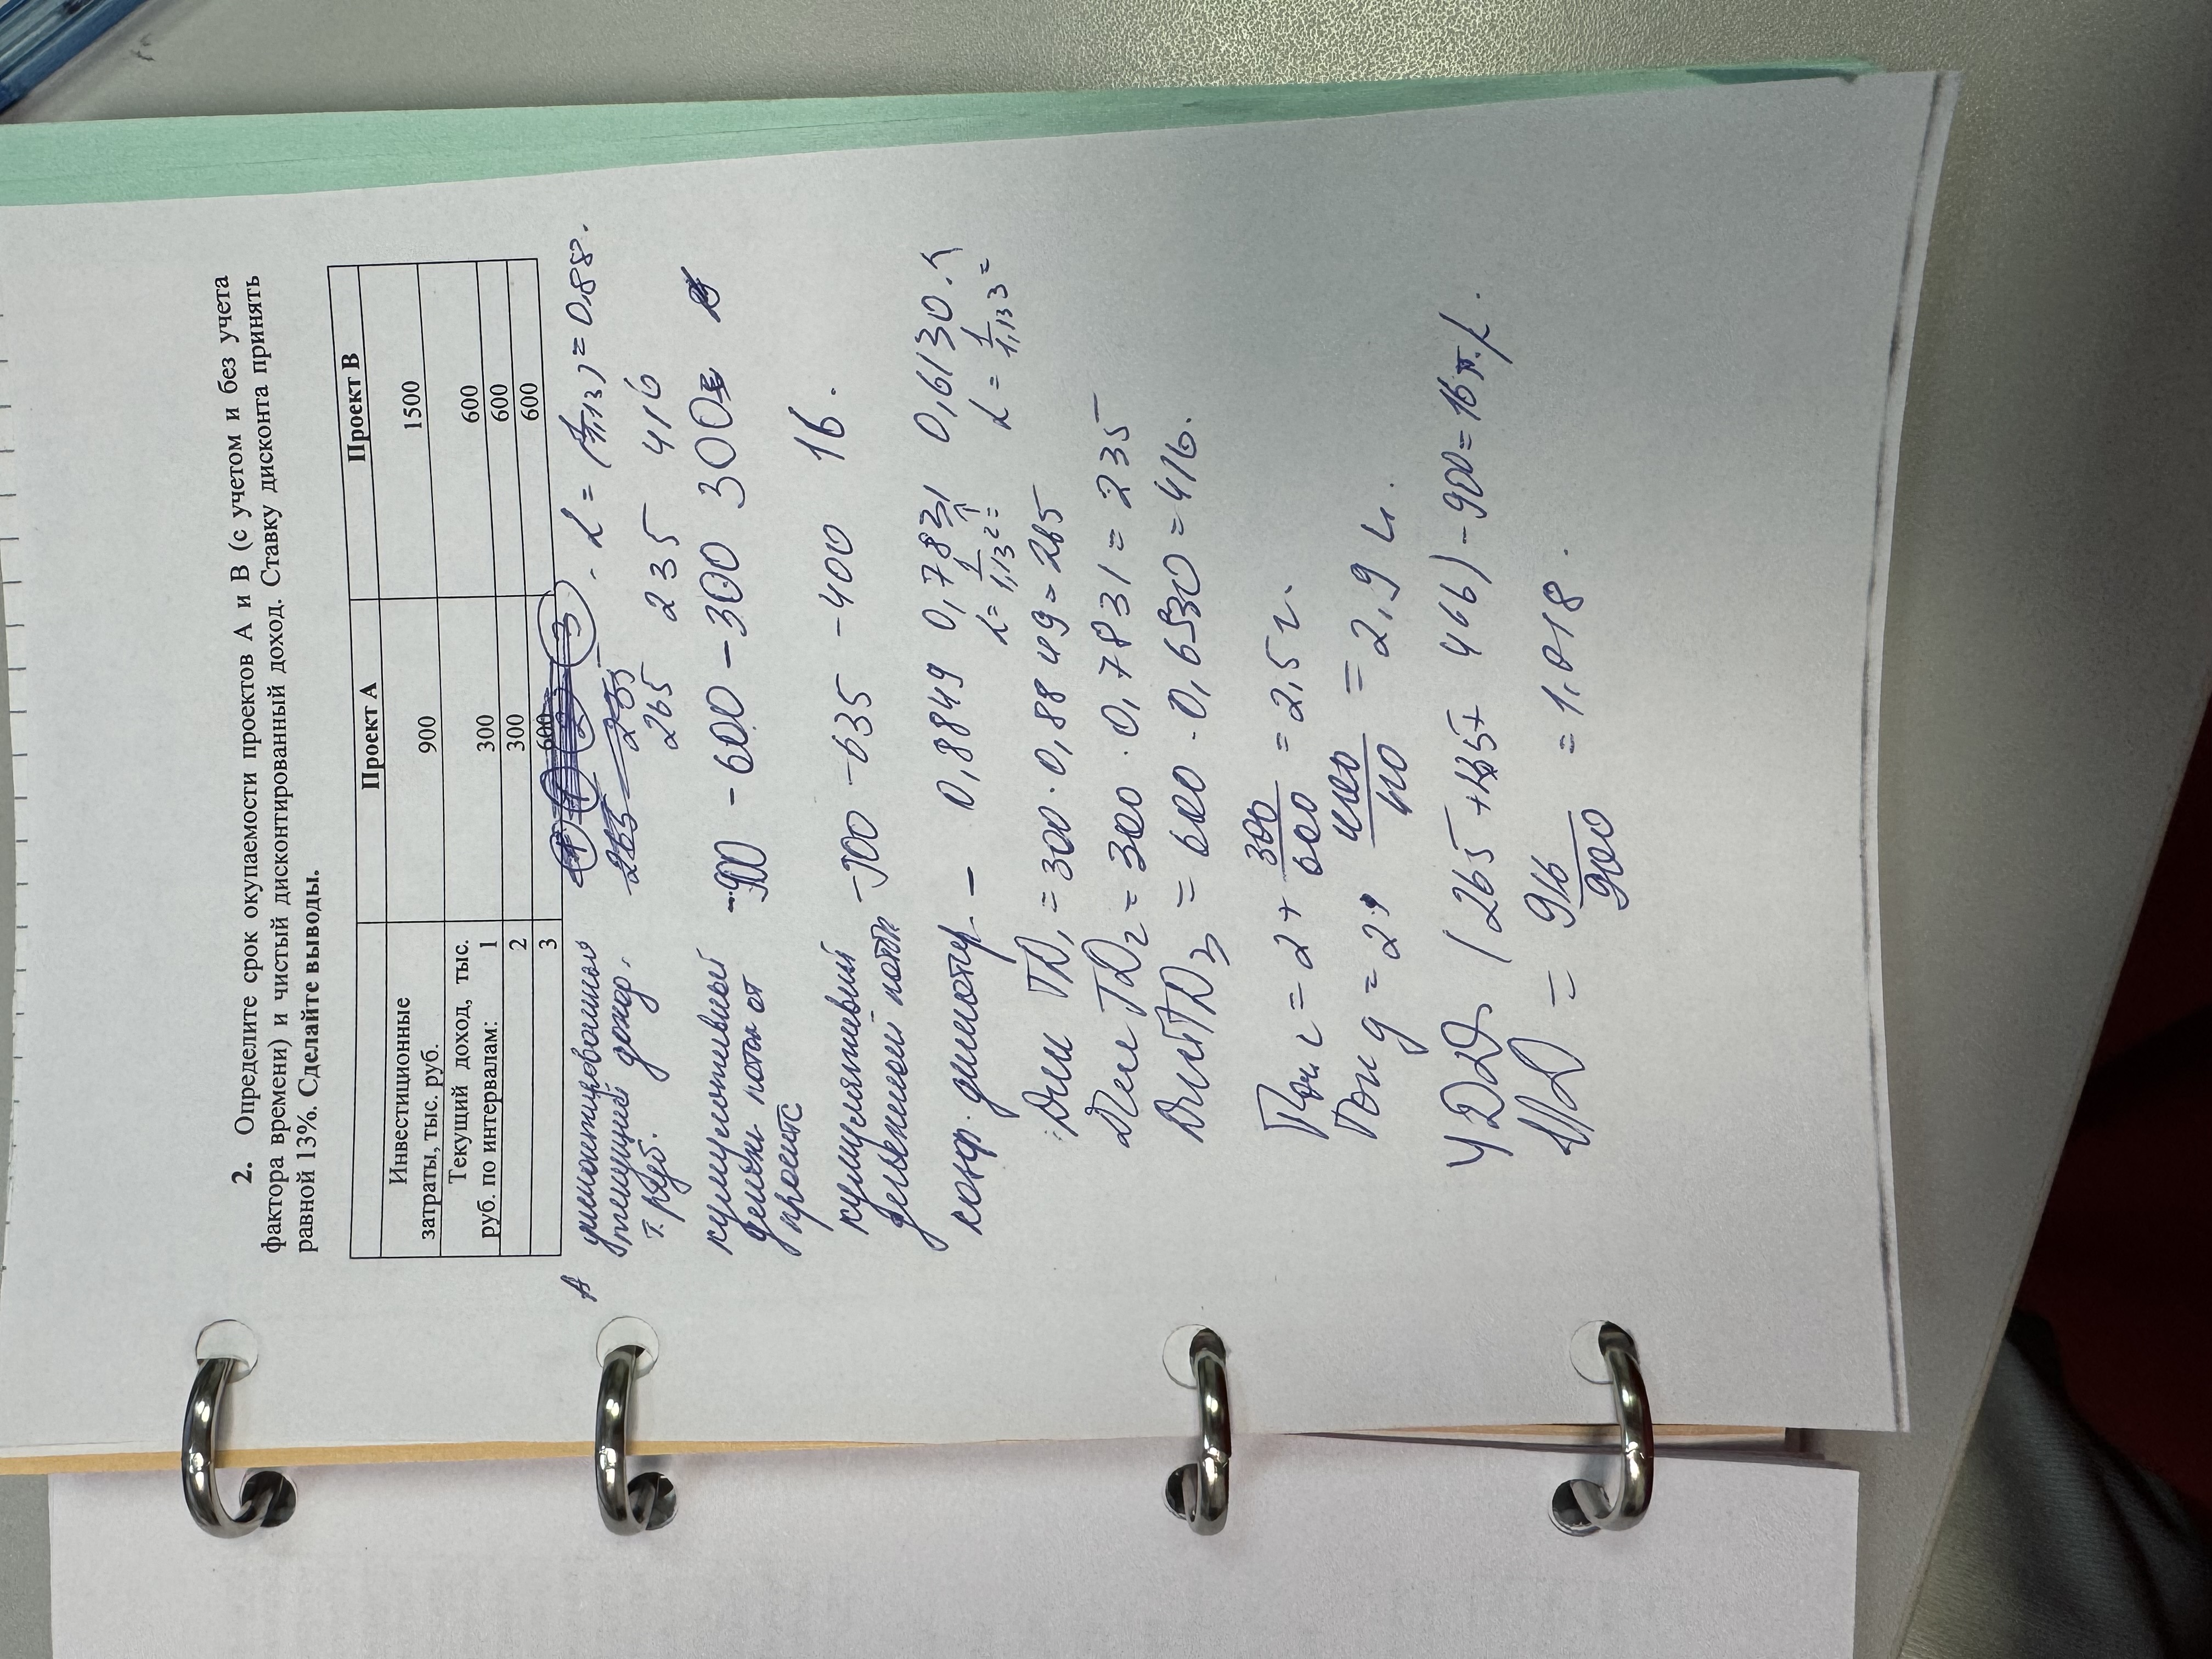 2. Определите срок окупаемости проектов А и В (с учетом и без учета
фактора времени) и чистый дисконтированный доход. Ставку дисконта принять
равной 13%. Сделайте выводы.
Проект А Проект В
Инвестиционные
затраты, тыс. руб. 900 1500
Текущий доход, тыс.
руб. по интервалам: 1 300 600
2 300 600
3 600 600
А дисконтированный 1 2 3 L = (1/1,13) = 0,88.
текущий доход,
т. руб. 265 235 416
кумулотивный -900 -600 -300 300
денежн поток от
проекта
кумулятивный -900 -635 -400 16.
денежный поток
коэф. – 0,8849 0,7831 0,6130.
L = 1/1,13² = L = 1/1,13³ =
Дис TD₁ = 300 · 0,8849 = 265
Дис TD₂ = 300 · 0,7831 = 235
Дис TD₃ = 600 · 0,6930 = 416.
Ток = 2 + 300/600 = 2,5 г.
Ток д = 2, 400/410 = 2,9
ЧДД = (265 + 235 + 416) - 900 = 16 т.р.
ИД = 916/900 = 1,018.